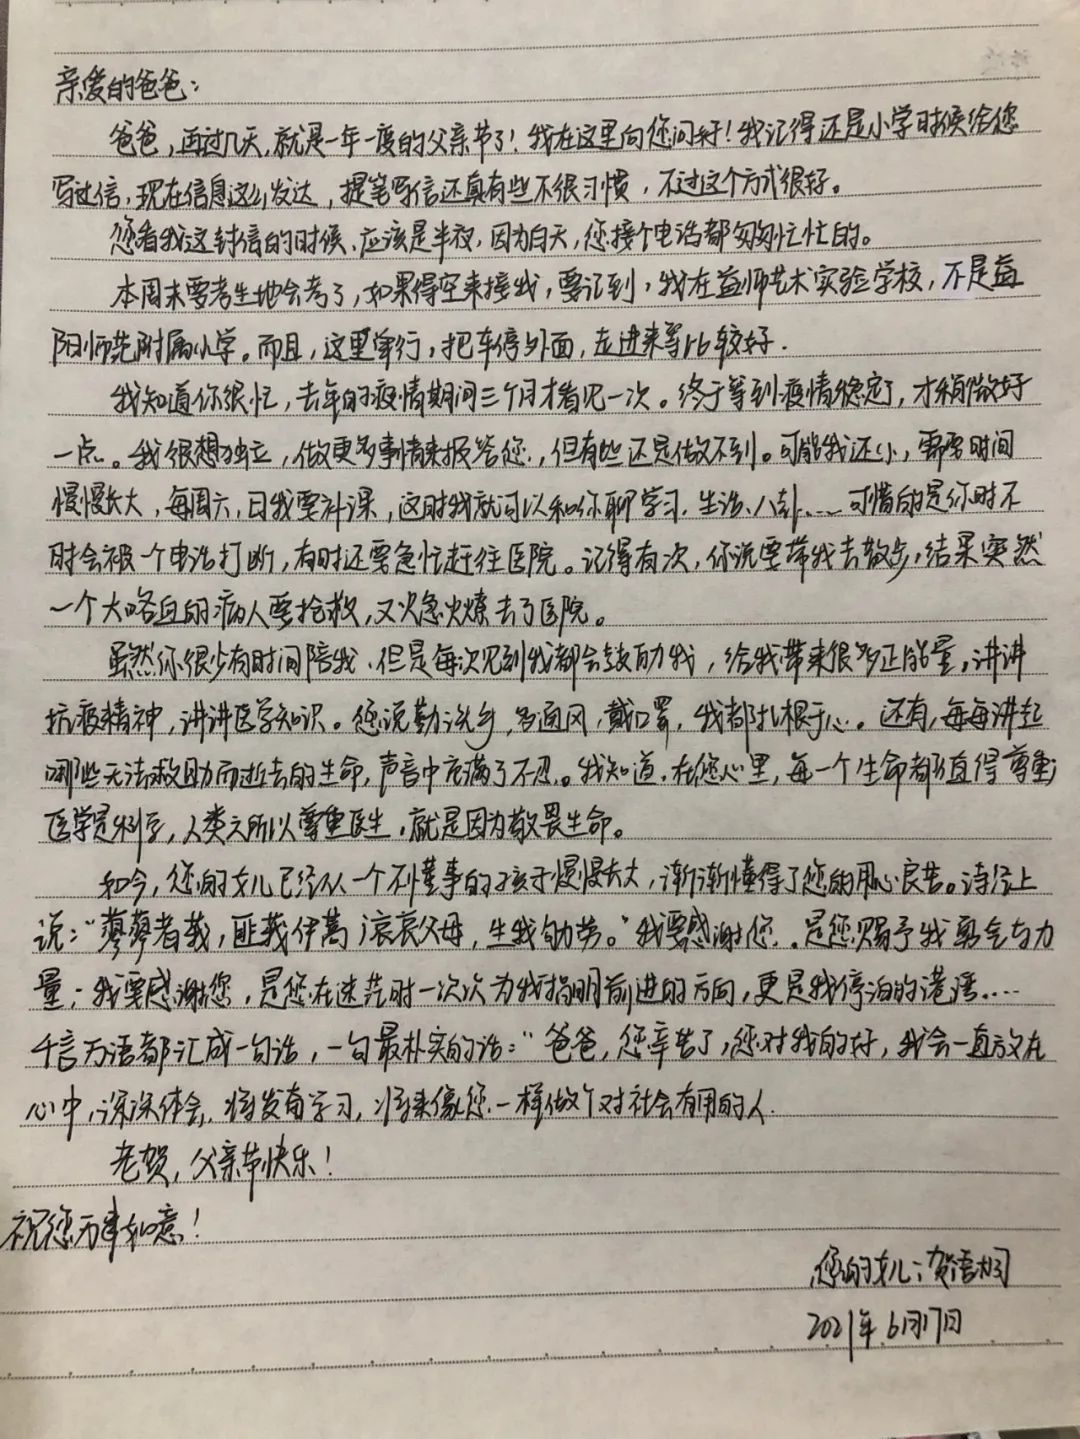 亲爱的爸爸：
爸爸，再过几天，就是一年一度的父亲节了！我在这里向您问好！我记得还是小学时候给您
写过信，现在信息这么发达，提笔写信还真有些不很习惯，不过这个方式很好。
您看我这封信的时候，应该是半夜，因为白天，您接个电话都匆匆忙忙的。
本周末要考生地会考了，如果得空来接我，要记到，我在益师艺术实验学校，不是益
阳师范附属小学。而且，这里单行，把车停外面，走进来等比较好.
我知道你很忙，去年的疫情期间三个月才看见一次。终于等到疫情稳定了，才稍微好
一点。我很想独立，做更多事情来报答您，但有些还是做不到。可能我还小，需要时间
慢慢长大，每周六，日我要补课，这时我就可以和你聊学习、生活、八卦……可惜的是你时不
时会被一个电话打断，有时还要急忙赶往医院。记得有次，你说要带我去散步，结果突然
一个大咯血的病人要抢救，又火急火燎去了医院。
虽然你很少有时间陪我，但是每次见到我都会鼓励我，给我带来很多正能量，讲讲
抗疫精神，讲讲医学知识。您说勤洗手，多通风，戴口罩，我都扎根于心。还有，每每讲起
哪些无法救助而逝去的生命，声音中充满了不忍。我知道，在您心里，每一个生命都值得尊重
医学是科学，人类之所以尊重医生，就是因为敬畏生命。
如今，您的女儿已经从一个不懂事的孩子慢慢长大，渐渐懂得了您的用心良苦。诗经上
说："蓼蓼者莪，匪莪伊蒿 哀哀父母，生我劬劳。"我要感谢您，是您赐予我勇气与力
量；我要感谢您，是您在迷茫时一次次为我指明前进的方向，更是我停泊的港湾……
千言万语都汇成一句话，一句最朴实的话："爸爸，您辛苦了，您对我的好，我会一直放在
心中，深深体会，将发奋学习，将来像您一样做个对社会有用的人.
老贺，父亲节快乐！
祝您万事如意！
您的女儿：贺语
2021年6月17日